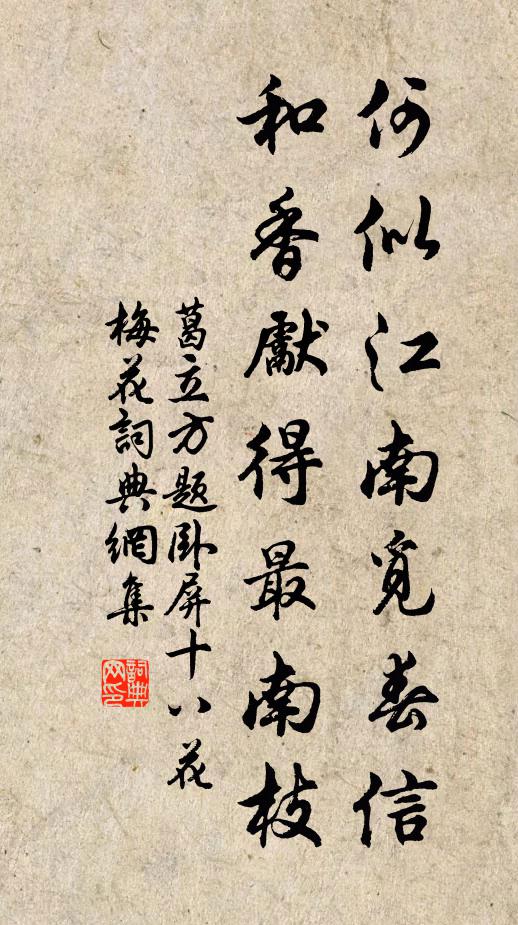 何似江南覓春信
和香獻得最南枝
葛立方題臥屏十八花
梅花詞典網集
詞典
网印